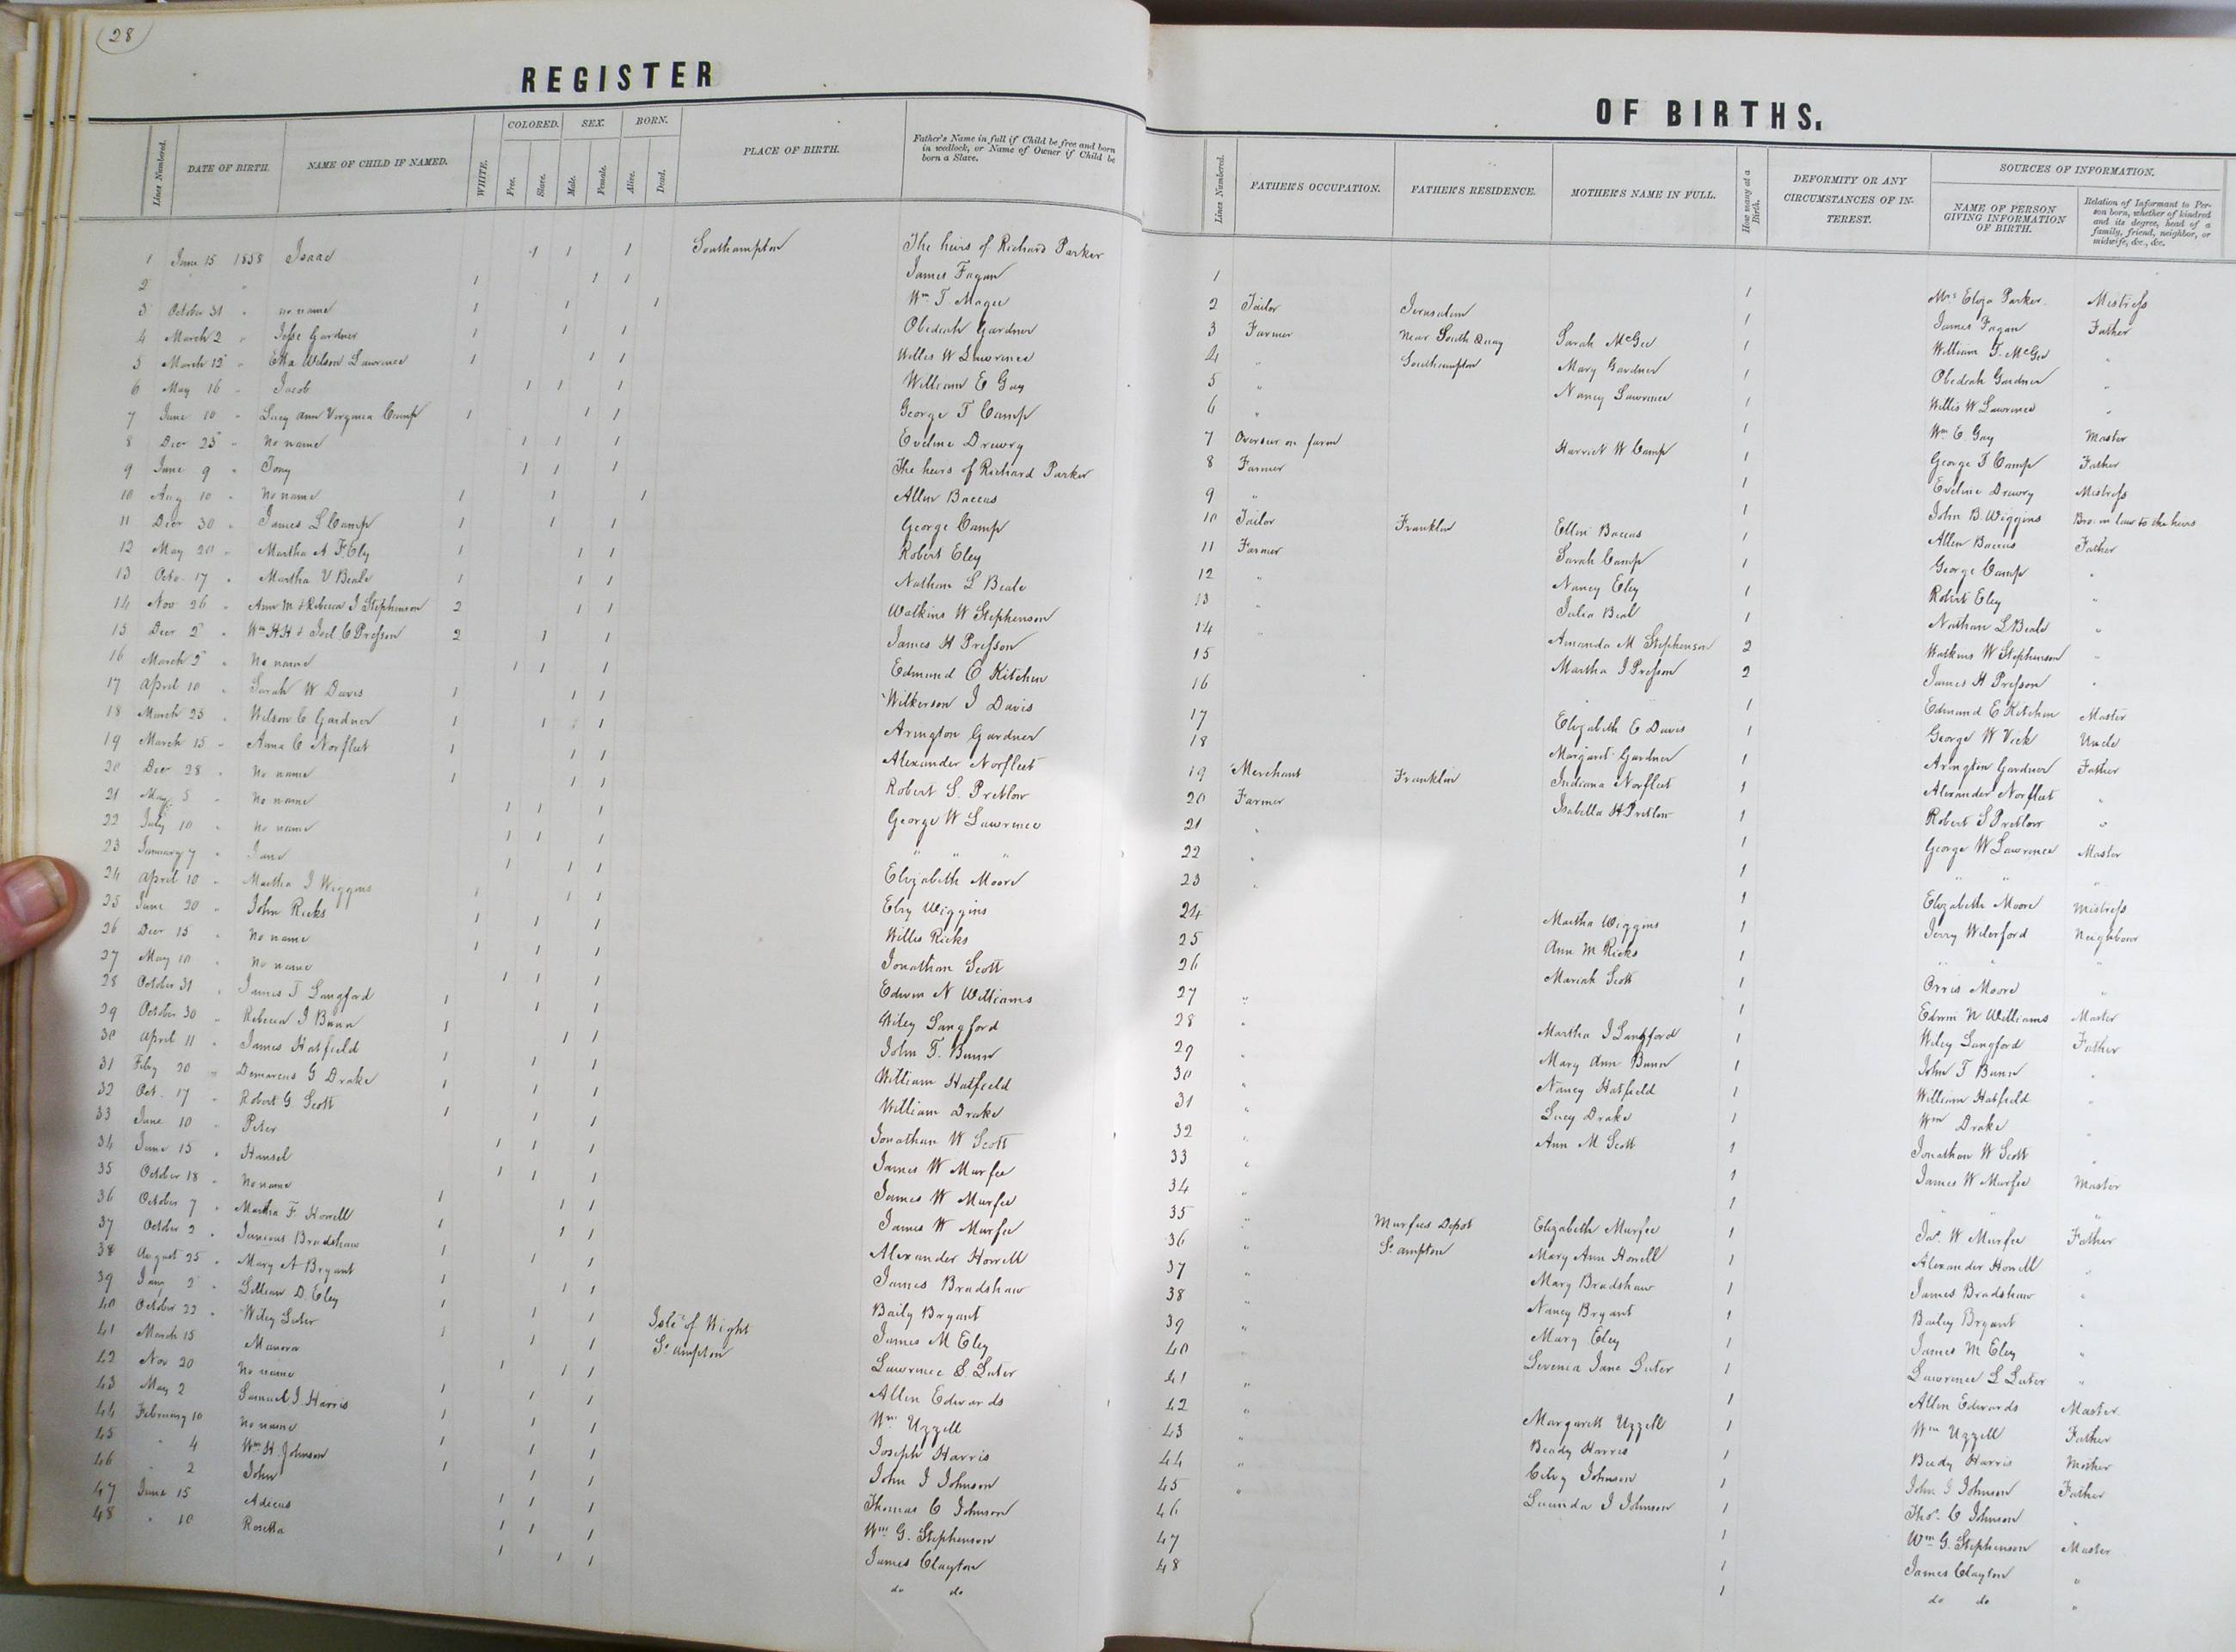 28
REGISTER
OF BIRTHS.
Lines Numbered. DATE OF BIRTH. NAME OF CHILD IF NAMED. WHITE. COLORED. Free. Slave. SEX. Male. Female. BORN. Alive. Dead. PLACE OF BIRTH. Father's Name in full if Child be free and born in wedlock, or Name of Owner if Child be born a Slave.
1 June 15 1858 Isaac 1 1 1 Southampton The heirs of Richard Parker
2 " 1 1 1 James Fagan
3 October 31 " no name 1 1 1 Wm T. Magee
4 March 2 " Jesse Gardner 1 1 1 Obediah Gardner
5 March 12 " Etta Wilson Lawrence 1 1 1 Willis W Lawrence
6 May 16 " Jacob 1 1 1 William E Gay
7 June 10 " Lucy Ann Virginia Camp 1 1 1 George T Camp
8 Decr 25 " No name 1 1 1 Eveline Drewry
9 June 9 " Tony 1 1 1 The heirs of Richard Parker
10 Aug 10 " No name 1 1 1 Allen Baccus
11 Decr 30 " James L Camp 1 1 1 George Camp
12 May 20 " Martha A F. Ely 1 1 1 Robert Eley
13 Octo. 17 " Martha V Beale 1 1 1 Nathan L Beale
14 Nov 26 " Ann M & Rebecca J Stephenson 2 1 1 Watkins W Stephenson
15 Decr 2 " Wm H H & Joel C Presson 2 1 1 James H Presson
16 March 2 " No name 1 1 1 Edmund E Kitchen
17 April 10 " Sarah W Davis 1 1 1 Wilkerson J Davis
18 March 25 " Wilson C Gardner 1 1 1 Arington Gardner
19 March 15 " Anna C Norfleet 1 1 1 Alexander Norfleet
20 Decr 28 " No name 1 1 1 Robert S. Pretlow
21 May 5 " No name 1 1 1 George W Lawrence
22 July 10 " No name 1 1 1 " " "
23 January 7 " Jane 1 1 1 Elizabeth Moore
24 April 10 " Martha J Wiggins 1 1 1 Elry Wiggins
25 June 20 " John Ricks 1 1 1 Willis Ricks
26 Decr 15 " No name 1 1 1 Jonathan Scott
27 May 10 " No name 1 1 1 Edwin N Williams
28 October 31 " James T Langford 1 1 1 Wiley Langford
29 October 30 " Rebecca J Bunn 1 1 1 John T. Bunn
30 April 11 " James Hatfield 1 1 1 William Hatfield
31 Feby 20 " Demarcus G Drake 1 1 1 William Drake
32 Oct. 17 " Robert G Scott 1 1 1 Jonathan W Scott
33 June 10 " Peter 1 1 1 James W Murfee
34 June 15 " Hansel 1 1 1 James W Murfee
35 October 18 " No name 1 1 1 James W Murfee
36 October 7 " Martha F Howell 1 1 1 Alexander Howell
37 October 2 " Junious Bradshaw 1 1 1 James Bradshaw
38 August 25 " Mary A Bryant 1 1 1 Baily Bryant
39 Jany 2 " Lillian D. Eley 1 1 1 Isle of Wight James M Eley
40 October 22 " Wiley Luter 1 1 1 So ampton Lawrence L. Luter
41 March 15 Manora 1 1 1 Allen Edwards
42 Nov 20 No name 1 1 1 Wm Uzzell
43 May 2 Samuel J. Harris 1 1 1 Joseph Harris
44 February 10 No name 1 1 1 John J Johnson
45 " 4 Wm H. Johnson 1 1 1 Thomas C Johnson
46 " 2 John 1 1 1 Wm G. Stephenson
47 June 15 Adicus 1 1 1 James Clayton
48 " 10 Rosetta 1 1 1 do do
Lines Numbered. FATHER'S OCCUPATION. FATHER'S RESIDENCE. MOTHER'S NAME IN FULL. How many at a Birth. DEFORMITY OR ANY CIRCUMSTANCES OF INTEREST. SOURCES OF INFORMATION. NAME OF PERSON GIVING INFORMATION OF BIRTH. Relation of Informant to Person born, whether of kindred and its degree, head of a family, friend, neighbor, or midwife, &c., &c.
1 1 Mrs Eliza Parker. Mistress
2 Tailor Jerusalem 1 James Fagan Father
3 Farmer Near South Quay Sarah McGee 1 William T. McGee "
4 " Southampton Mary Gardner 1 Obediah Gardner "
5 " Nancy Lawrence 1 Willis W Lawrence "
6 " 1 Wm E Gay Master
7 Overseer on farm Harriet W Camp 1 George T Camp Father
8 Farmer 1 Eveline Drewry Mistress
9 " 1 John B. Wiggins Bro. in law to the heirs
10 Tailor Franklin Ellin Baccus 1 Allen Baccus Father
11 Farmer Sarah Camp 1 George Camp "
12 " Nancy Eley 1 Robert Eley "
13 " Julia Beal 1 Nathan L Beale "
14 " Amanda M Stephenson 2 Watkins W Stephenson "
15 Martha J Presson 2 James H Presson "
16 1 Edmund E Kitchen Master
17 Elizabeth E Davis 1 George W Vick Uncle
18 Margaret Gardner 1 Arington Gardner Father
19 Merchant Franklin Indiana Norfleet 1 Alexander Norfleet "
20 Farmer Isabella H Pretlow 1 Robert S Pretlow "
21 " 1 George W Lawrence Master
22 " 1 " " "
23 " 1 Elizabeth Moore Mistress
24 Martha Wiggins 1 Jerry Wilerford Neighbour
25 Ann M Ricks 1 " " "
26 Mariah Scott 1 Orris Moore "
27 " 1 Edwin N Williams Master
28 " Martha J Langford 1 Wiley Langford Father
29 " Mary Ann Bunn 1 John T Bunn "
30 " Nancy Hatfield 1 William Hatfield "
31 " Lucy Drake 1 Wm Drake "
32 " Ann M Scott 1 Jonathan W Scott "
33 " 1 James W Murfee Master
34 " 1 "
35 " Murfees Depot Elizabeth Murfee 1 Jas W Murfee Father
36 " So ampton Mary Ann Howell 1 Alexander Howell "
37 " Mary Bradshaw 1 James Bradshaw "
38 " Nancy Bryant 1 Bailey Bryant "
39 " Mary Eley 1 James M Eley "
40 " Levenia Jane Luter 1 Lawrence L Luter "
41 " 1 Allen Edwards Master
42 " Margarett Uzzell 1 Wm Uzzell Father
43 " Beady Harris 1 Beedy Harris Mother
44 " Cilvy Johnson 1 John J Johnson Father
45 " Lucinda J Johnson 1 Thos. C Johnson "
46 1 Wm G. Stephenson Master
47 1 James Clayton "
48 1 do do "